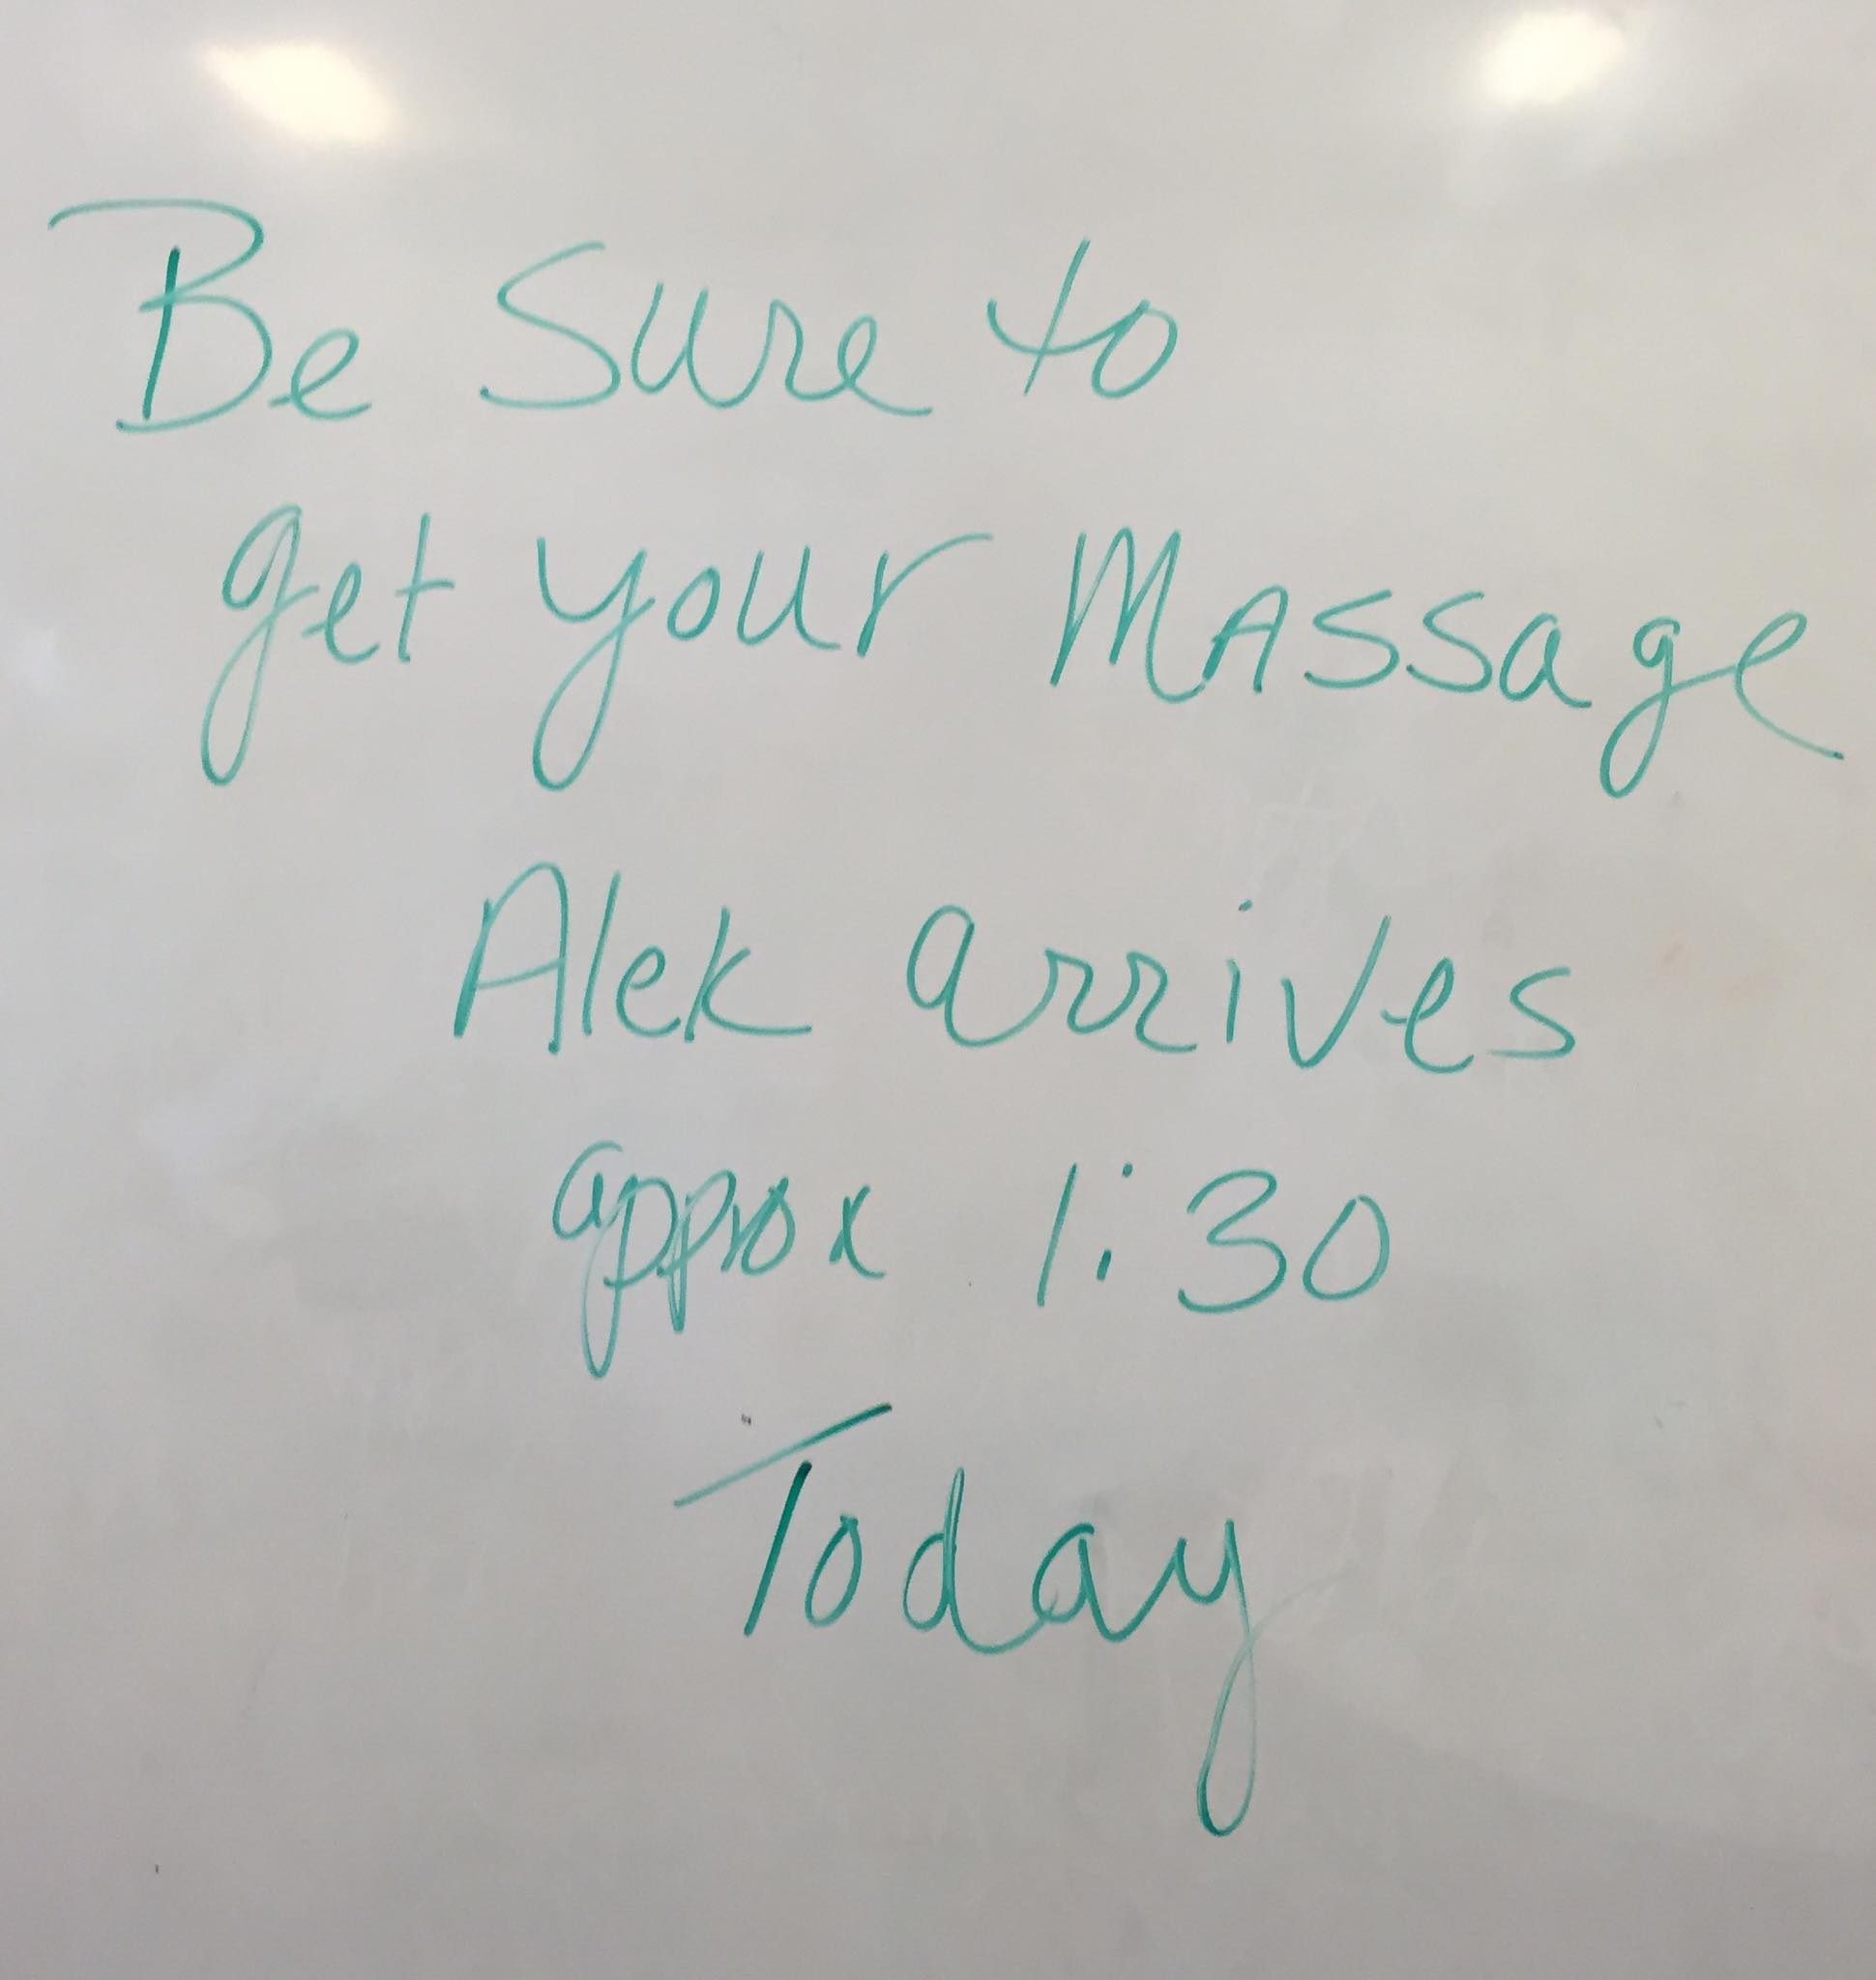 Be Sure to
get your MAssage
Alek arrives
approx 1:30
Today